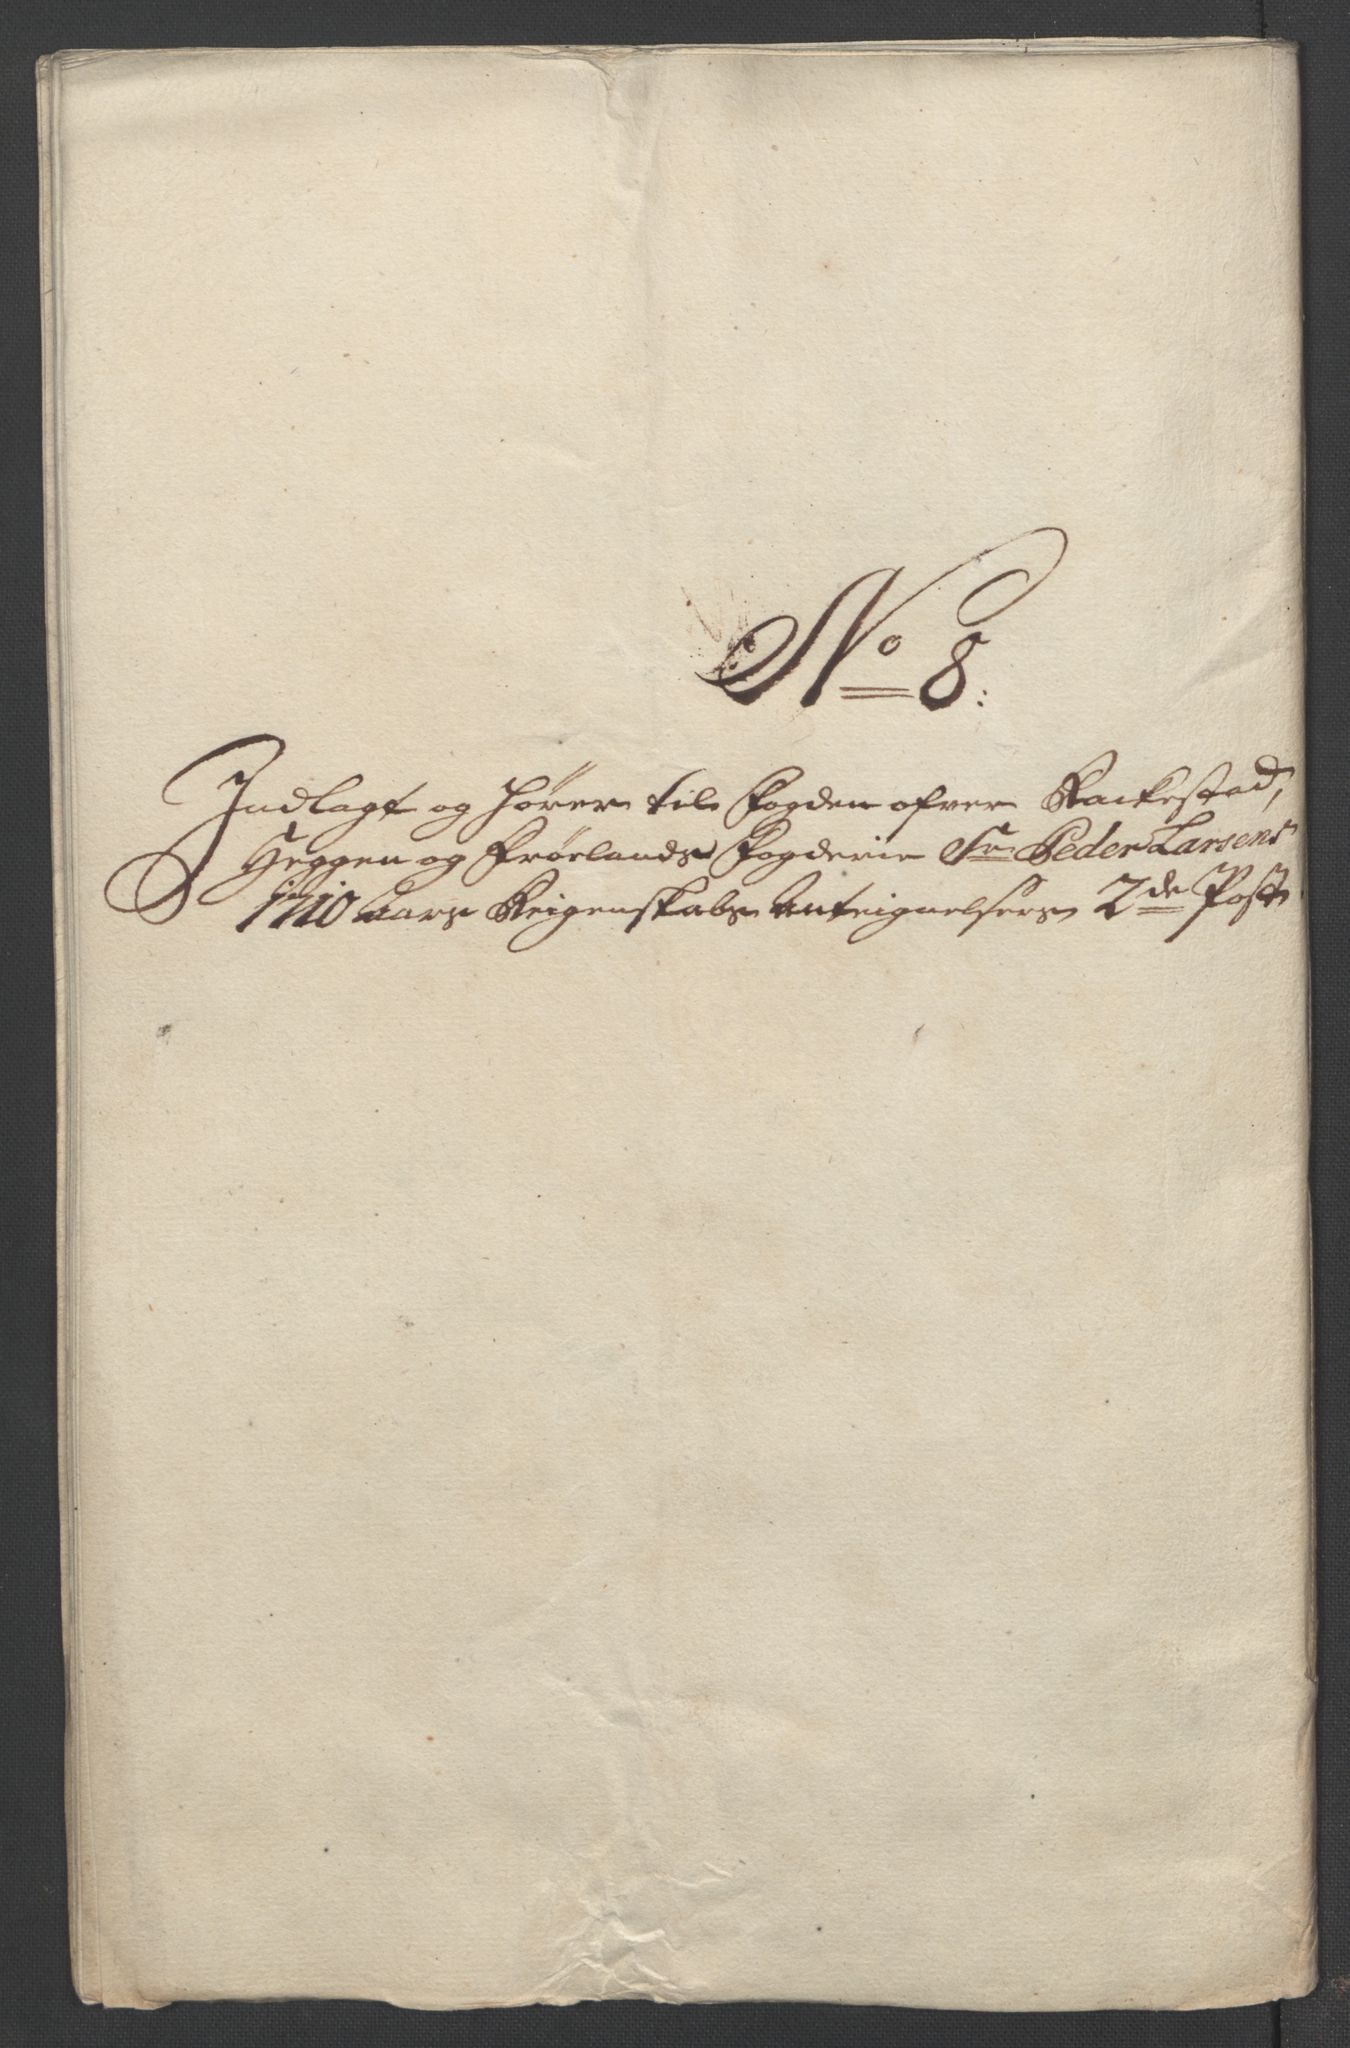 No 8:
Indlagt og hører til Fogden ofver Rackestad,
Heggen og Frøelands Fogderie Sr Peder Larsens
1710 Aars Reigenskabs Anteignelsers 2de Post